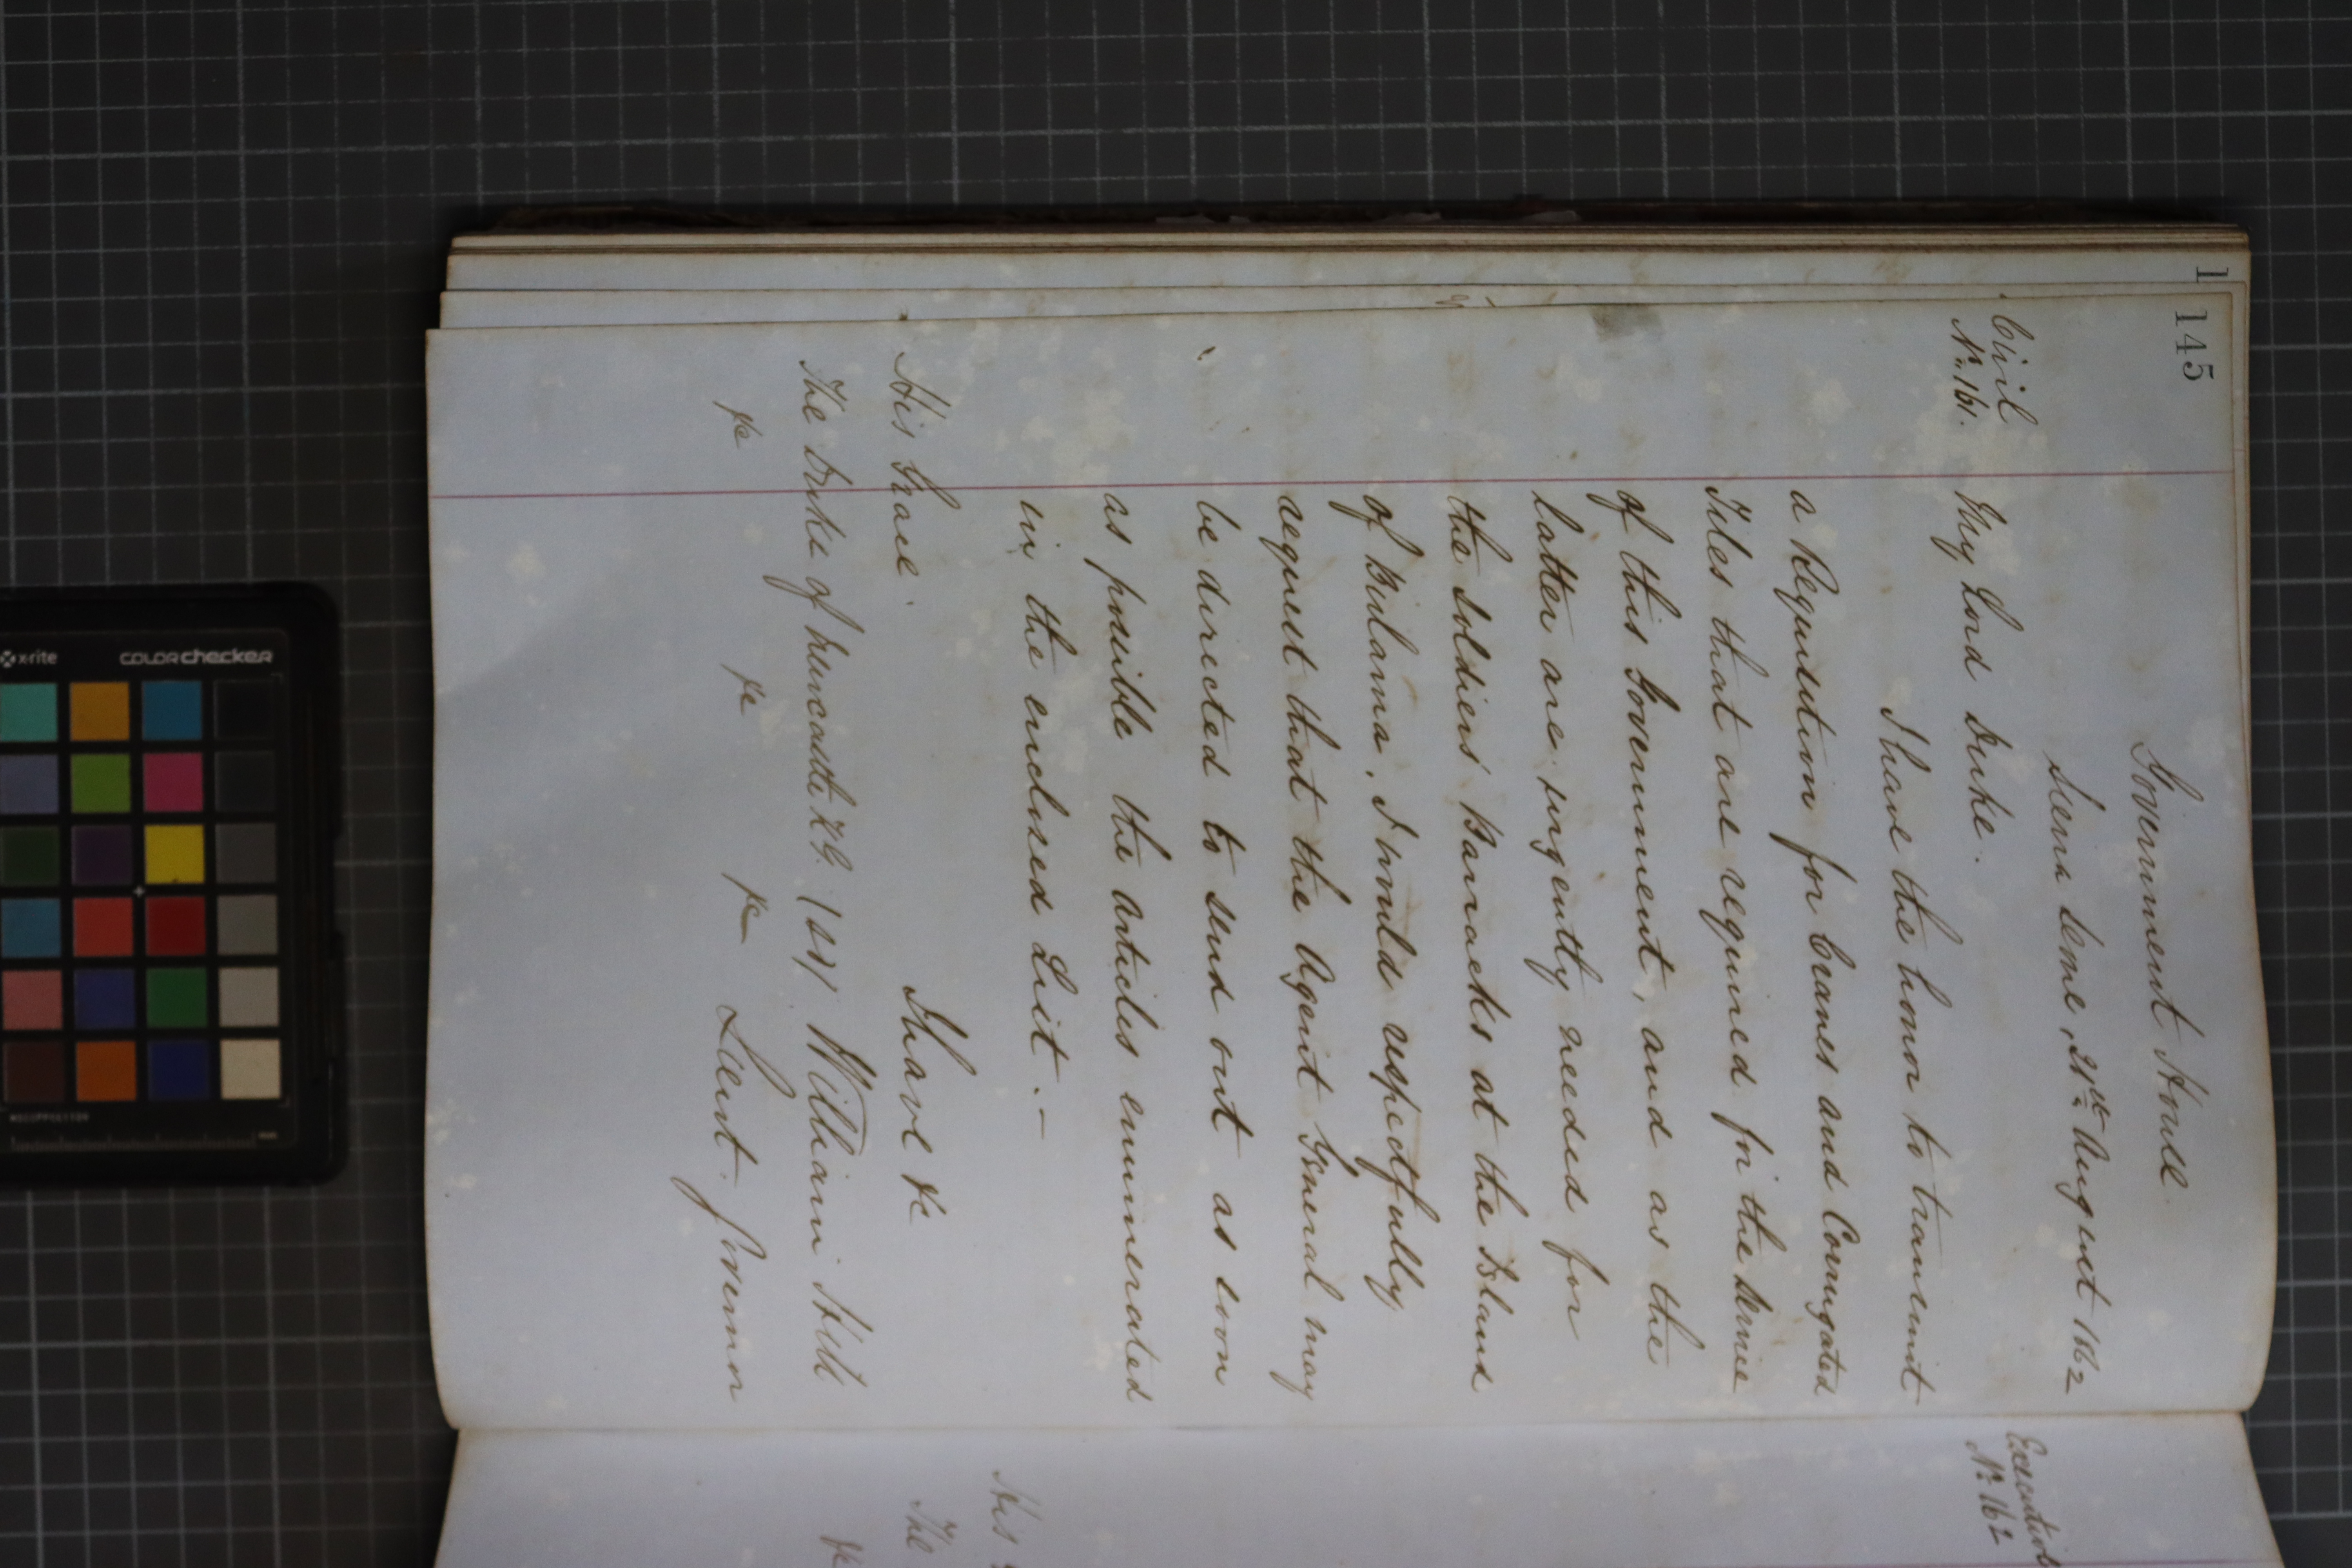 145
Government House.
Sierra Leone, 21st August 1862
Civil
No. 161.
My Lord Duke.
I have the honor to transmit
a Requisition for Cranes and Corrugated
Tiles that are required for the service
of this Government, and as the
latter are urgently needed for
the soldiers' Barracks at the Island
of Bulama, I would respectfully
request that the Agent General may
be directed to send out as soon
as possible the articles enumerated
in the enclosed List.-
I have &c
His Grace
The Duke of Newcastle K.G. (sd) William Hill
&c &c &c Lieut. Governor
1
No. 162
His
The
&c
x-rite
COLORchecker
mm